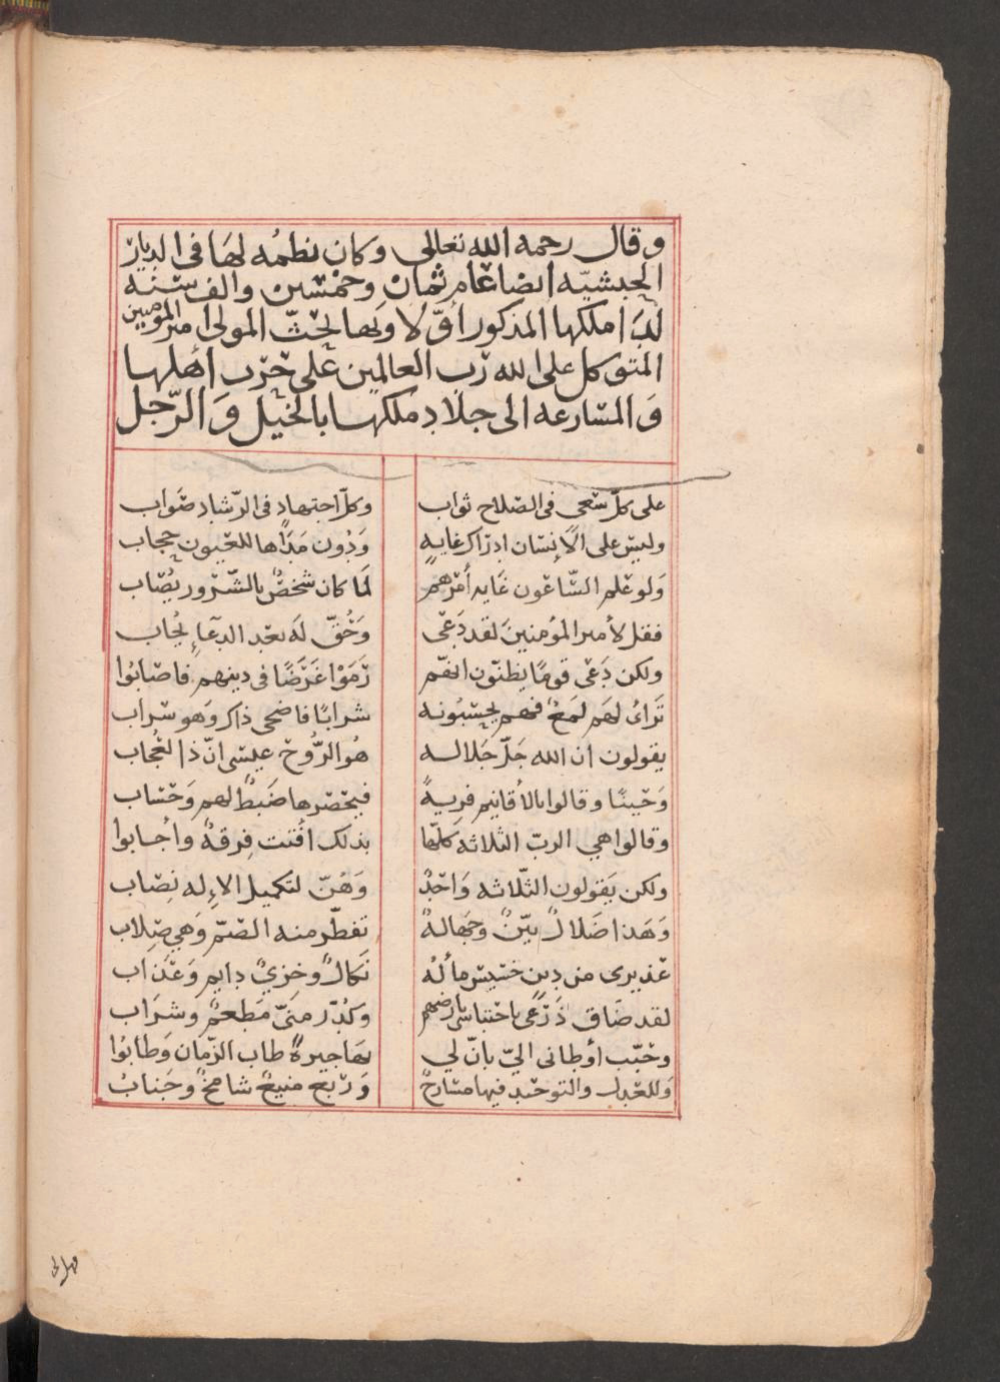 وقال رحمه الله تعالى وكان نظمُه لهَا في الديار
الحبشيّه ايضا عام ثمان وخمسين والف سنه
املكها المذكور أوّلا وبها يحثّ المولى امير المومنين
المتوكل على الله رب العالمين على حرب اهلها
وَالمسارعه الى جلاد ملكها بالخيل وَالرّجل
على كلّ سَعي في الصّلاح ثواب وكلّ اجتهاد في الرّشاد صَواب
وليسَ على الإنسَان ادراك غايه وَدُون مَدَاها للعيون حِجاب
وَلو علم السّاعُون غَايه أمرهم لمَا كان شخصٌ بالشّرور يُصَاب
فقل لأمير المؤمنينَ لقد دَعَى وَحُقّ لَه بعد الدعَاءِ يُجاب
ولكن دَعَى قومًا يظنّون انهم رَمَوْا غَرَضًا في دينهم فاصَابُوا
تَراءى لهَم لمَعٌ فهم يحسَبُونه شرابًا فاضحى ذاكَ وَهو سَراب
يقولون أن الله جَلّ جَلاله هُو الرُّوح عيسَى انّ ذا لعُجاب
وَحينًا وقالوا بالأقانيم فِريةً فيحصرها ضَبطٌ لهم وَحسَاب
وقالوا هي الربّ الثلاثه كلّها بذلك افتت فِرقةٌ وأجابوا
ولكن يَقولون الثّلاثه وَاحدٌ وَهُنّ لتكميل الإله نِصَاب
وَهَذا ضَلالٌ بيّنٌ وجَهالةٌ تفطّر منه الصّمّ وَهي صِلاب
عَذيرى من دين خسيسٍ مآلُه نَكالٌ وخزيٌ دايم وَعَذاب
لقد ضَاق ذَرْعى باحتباسى بارضهم وكُدّر منّى مَطعمٌ وشرَاب
وحُبّب أوطانى اليّ بانّ لي بهَا جيرةً طاب الزّمان وَطابُوا
وَللعدل والتوحيد فيها مسَارحٌ وَربع منيعٌ شامخٌ وجَنابُ